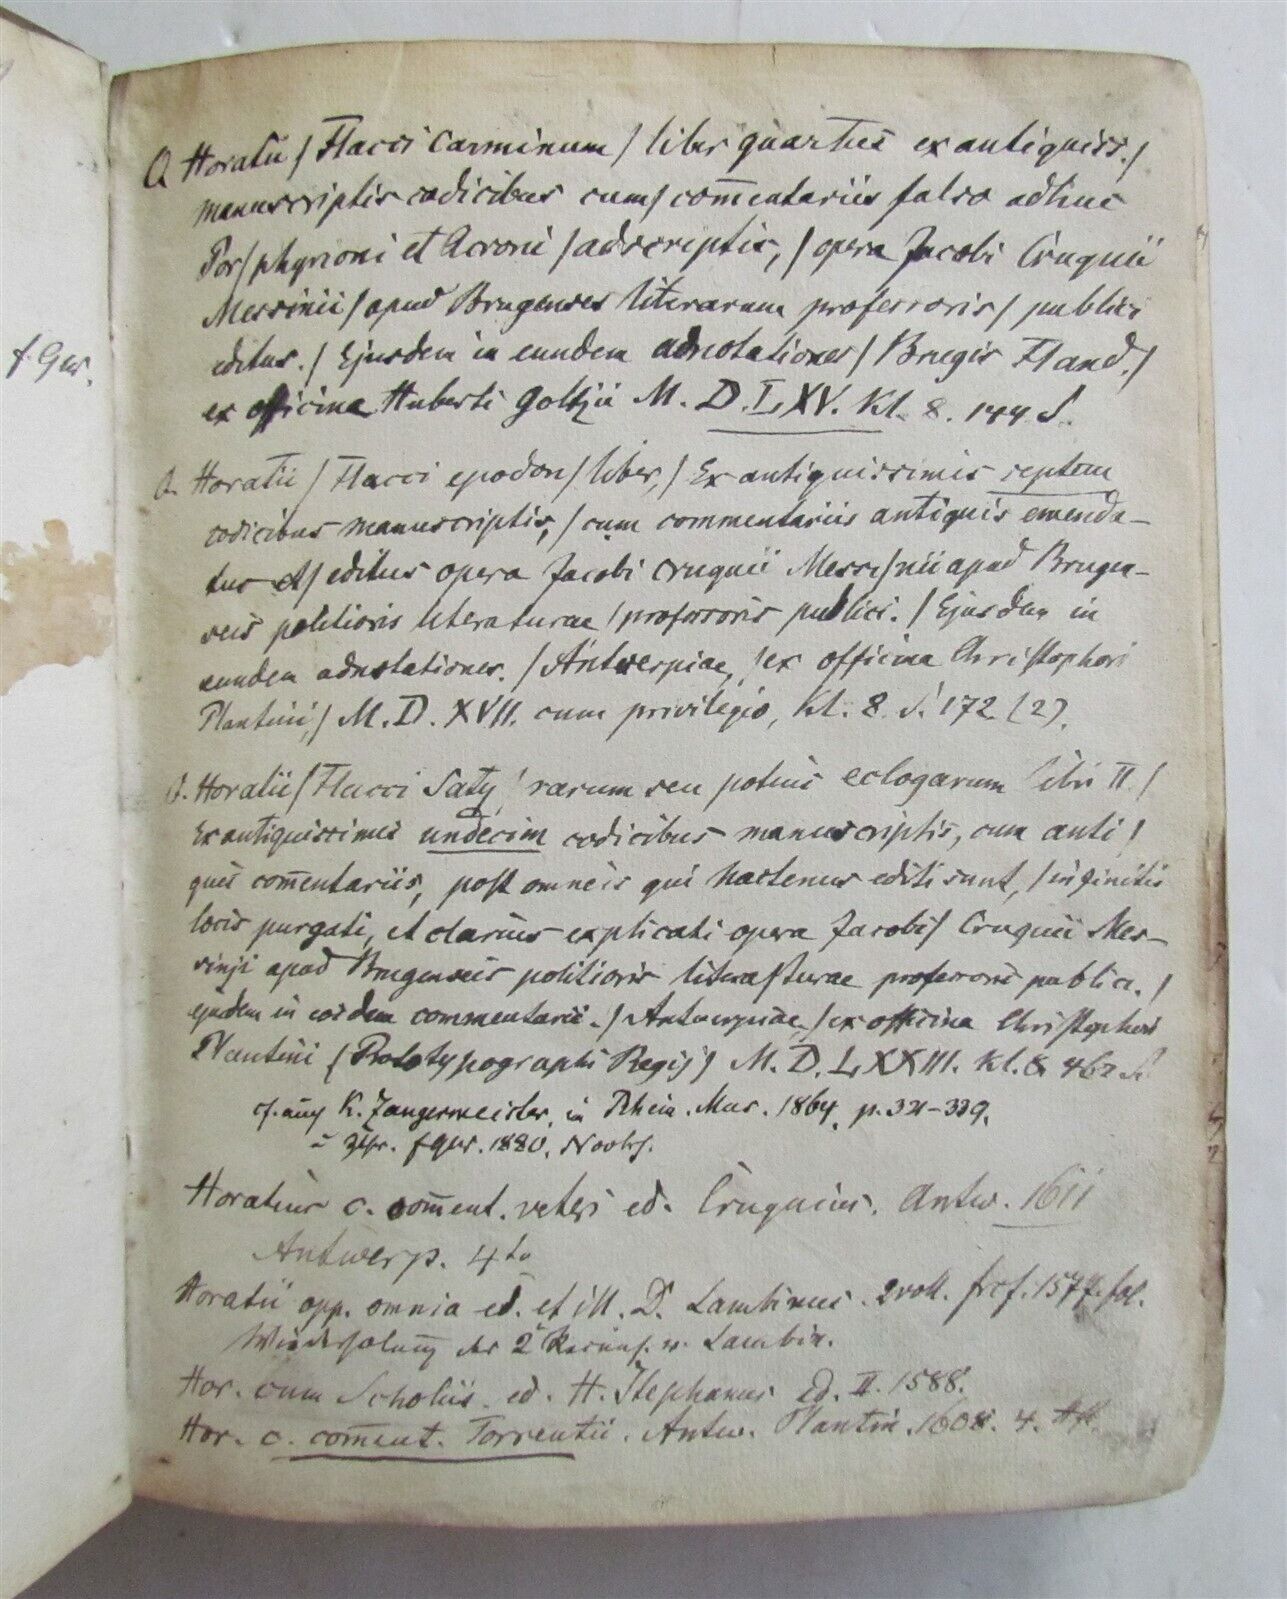 f. Gw.
Q Horatii / Flacci Carminum / liber quartus ex antiquiss. /
manuscriptis codicibus cum / com̄entariis falso adhuc
Por / phyrioni et Acroni / adscriptis, / opera Jacobi Cruquii
Messinii / apud Brugenses literarum professoris / publici
editus. / Ejusdem in eundem adnotationes / Brugis Fland. /
ex officina Huberti Goltzii M. D. LXV. Kl. 8. 144 S.
Q. Horatii / Flacci epodon / liber, / Ex antiquissimis septem
codicibus manuscriptis, / cum commentariis antiquis emenda-
tus et / editus opera Jacobi Cruquii Messi / nii apud Brugen-
seis politioris literaturae / professoris publici. / Ejusdem in
eundem adnotationes. / Antwerpiae, / ex officina Christophori
Plantini, / M. D. XVII. cum privilegio, Kl. 8. S. 172 (2).
Q. Horatii / Flacci Saty / rarum seu potius eclogarum libri II. /
Ex antiquissimis undecim codicibus manuscriptis, cum anti /
quis com̄entariis, post omneis qui hactenus editi sunt, / infinitis
locis purgati, et clarius explicati opera Jacobi / Cruquii Mes-
sinij apud Brugenseis politioris litera / turae professoris publici. /
ejusdem in eosdem commentarii. / Antwerpiae, / ex officina Christophori
Plantini (Prototypographi Regij) M. D. LXXIII. Kl. 8. 462 S.
cf. K. Zangemeister, in Rhein. Mus. 1864, p. 321-339.
1880.
Horatius c. com̄ent. veteri ed. Cruquius. Antw. 1611
Antwerp. 4to
Horatii opp. omnia ed. et ill. D. Lambinus. 2 voll. frcf. 1577. fol.
Wiederholung der 2 Recens. v. Lambin.
Hor. cum Scholiis ed. H. Stephanus Ed. II. 1588.
Hor. c. com̄ent. Torrentii. Antw. Plantin. 1608. 4.